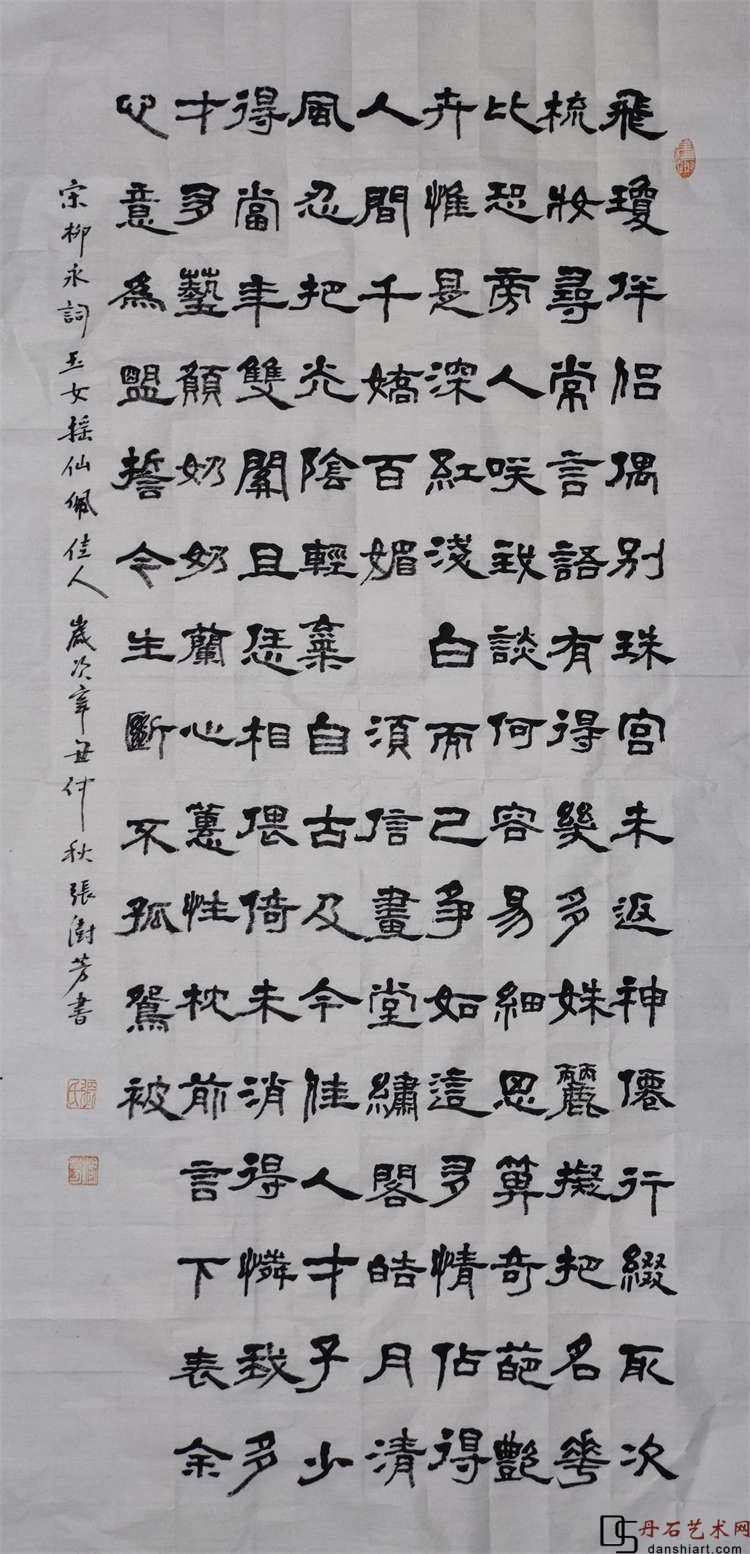 飛瓊伴侶偶別珠宮未返神僊行綴取次
梳妝尋常言語有得幾多姝麗擬把名花
比恐旁人咲我談何容易細思算奇葩艷
卉惟是深紅淺白而已爭如這多情佔得
人間千嬌百媚 須信畫堂繡閣皓月清
風忍把光陰輕棄自古及今佳人才子少
得當年雙關且恁相偎倚未消得憐我多
才多藝願奶奶蘭心蕙性枕前言下表余
心意為盟誓今生斷不孤鴛被
宋柳永詞玉女搖仙佩佳人 歲次辛丑仲秋張澍芳書
丹石艺术网
danshiart.com